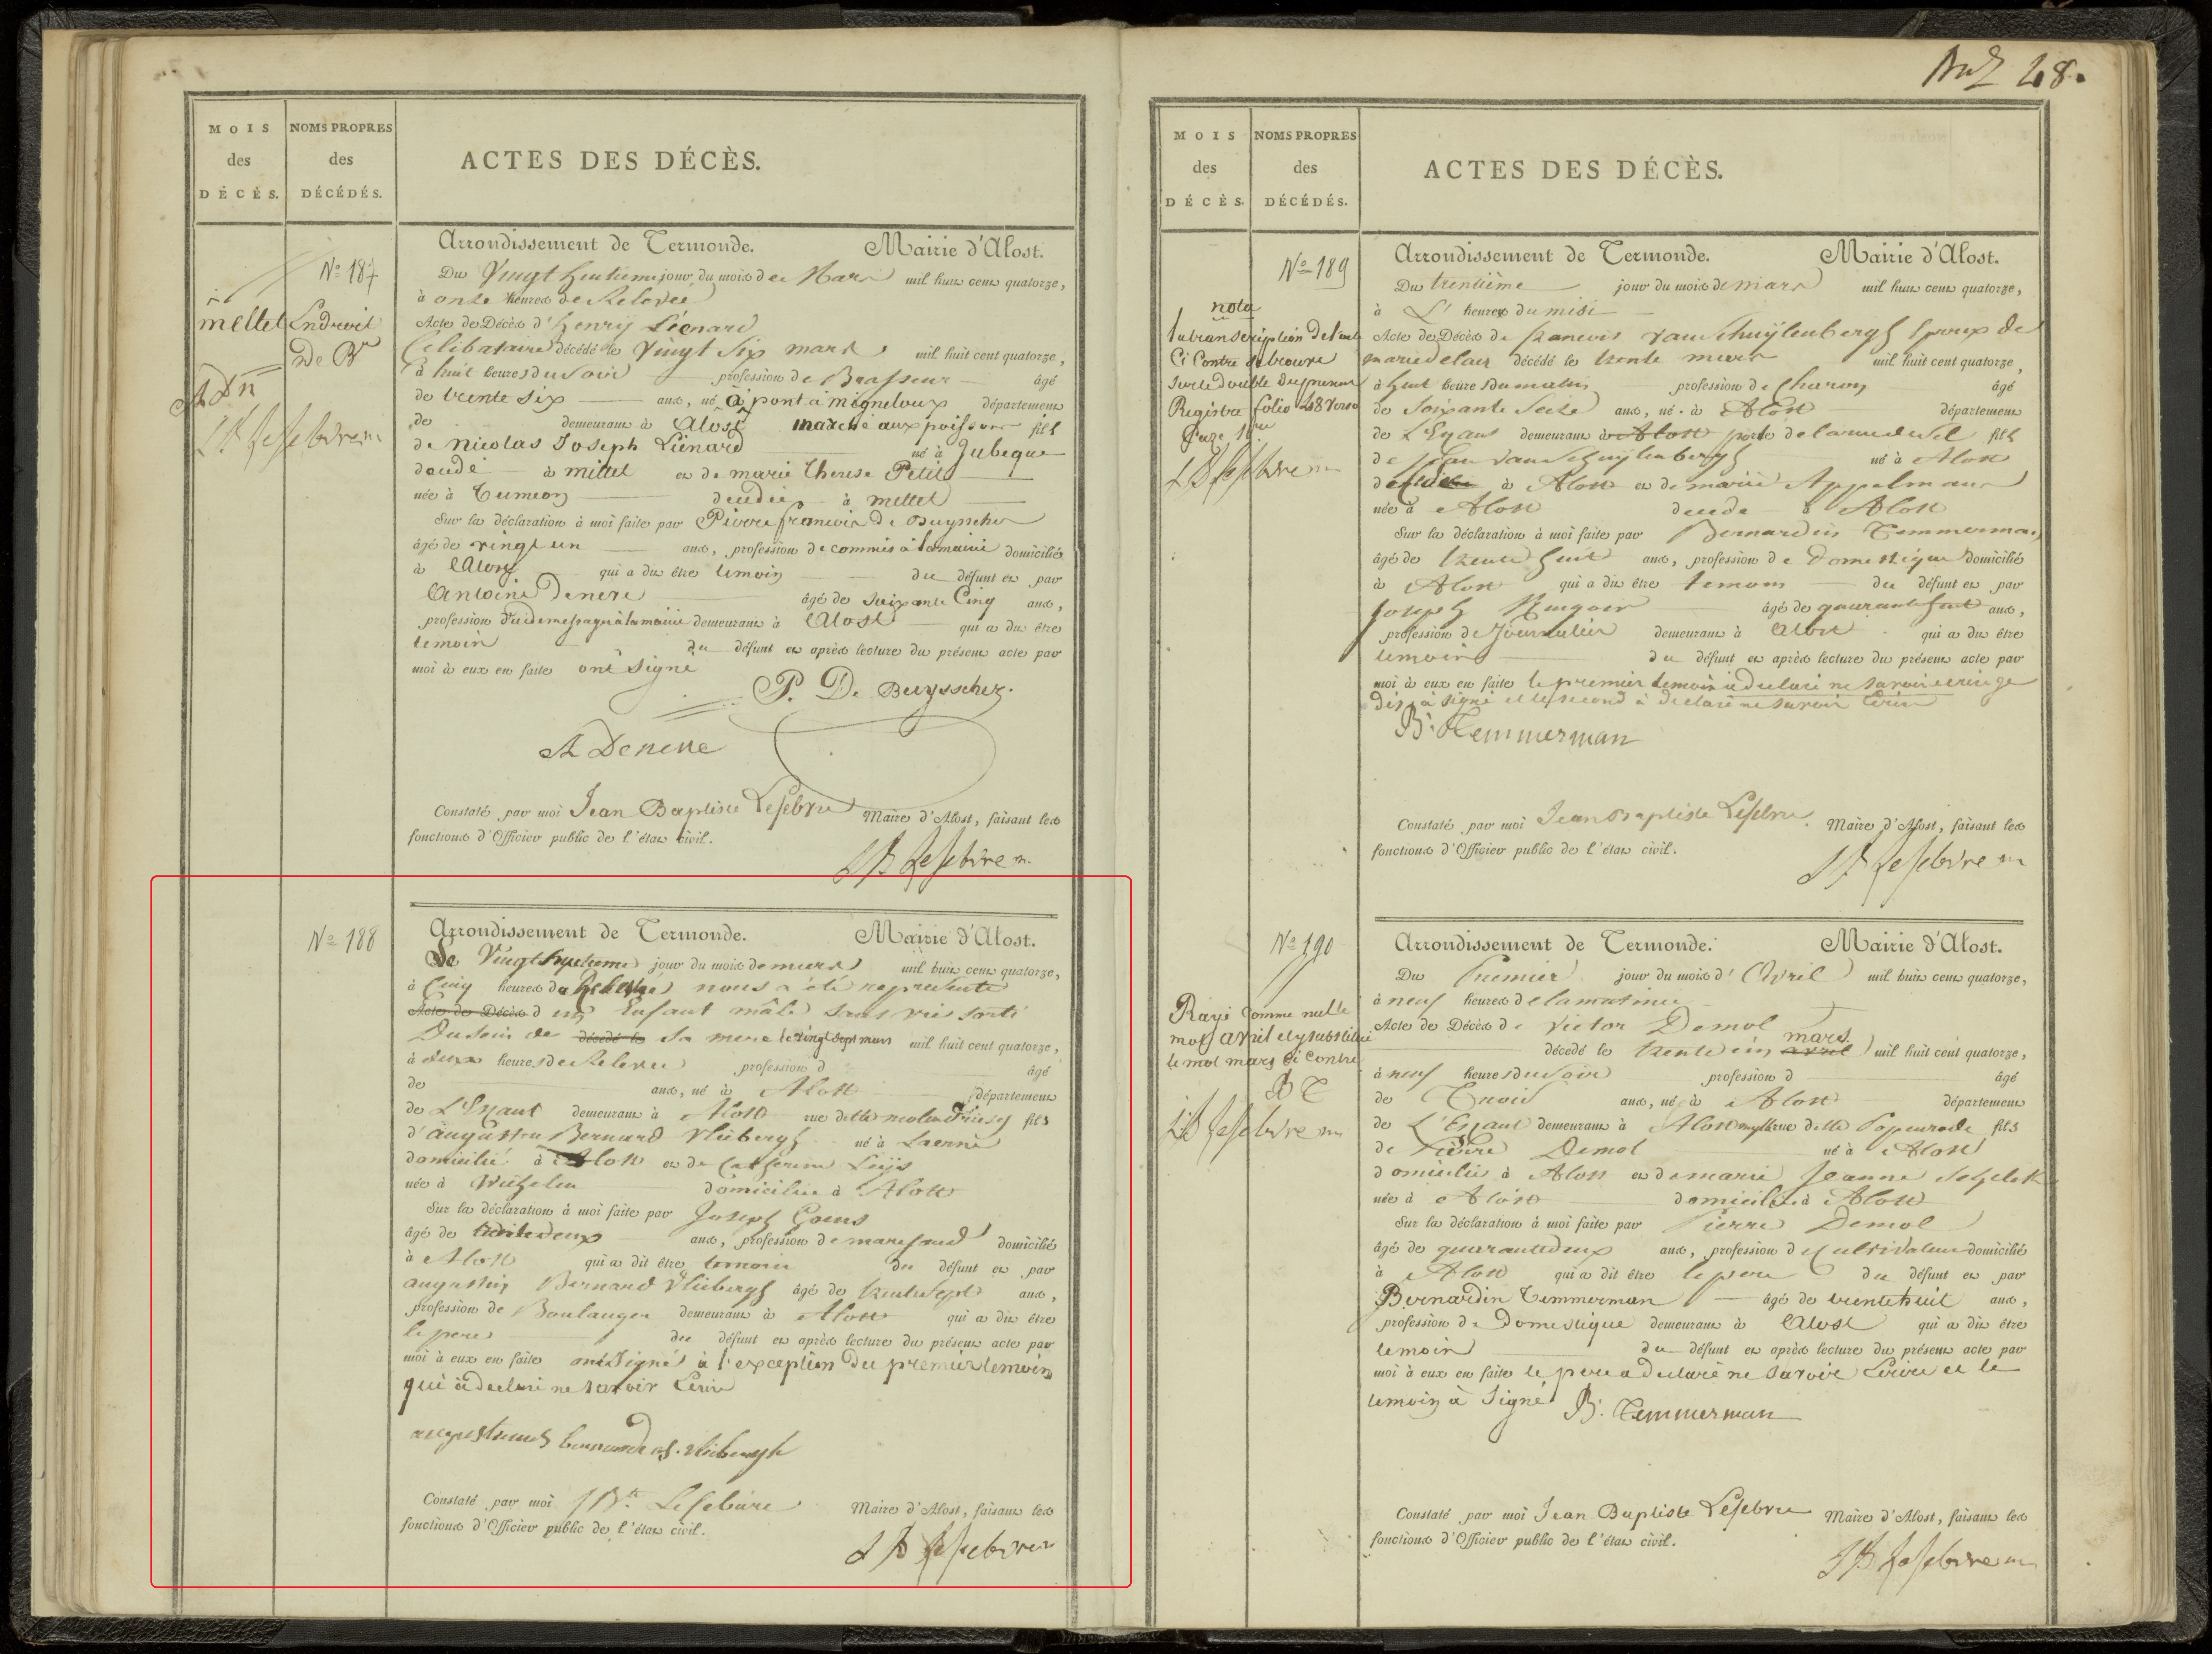 Bul 48.
MOIS
des
DÉCÈS.
NOMS PROPRES
des
DÉCÉDÉS.
ACTES DES DÉCÈS.
Nº 187
mellet Endroit
De
A Dn
J B Lefebvre m
Arrondissement de Termonde. Mairie d'Alost.
Du Vingt huitieme jour du mois de Mars mil huit cent quatorze,
à onze heures de Relevée
Acte de Décès d'henrij Liénard
Celibataire décédé le Vingt Six mars mil huit cent quatorze,
à huit heures du soir profession de Brasseur âgé
de trente six ans, né à pont à migneloux département
de demeurant à Alost marché aux poissons fils
de Nicolas Joseph Liénard né à Jubeque
decedé à mellet et de marie Therese Petit
née à Tumeon decedée à mellet
Sur la déclaration à moi faite par Pierre francois De Buysscher
âgé de vingt un ans, profession de commis à la mairie domicilié
à Alost qui a dit être temoin du défunt et par
Antoine Denere âgé de Soixante Cinq ans,
profession demeurant à Alost qui a dit être
temoin du défunt et après lecture du présent acte par
moi à eux en faite ont signé
P. De Buysscher.
A Denere
Constaté par moi Jean Baptiste Lefebvre Maire d'Alost, faisant les
fonctions d'Officier public de l'état civil.
J B Lefebvre m.
Nº 188
Arrondissement de Termonde. Mairie d'Alost.
Le Vingt huitieme jour du mois de mars mil huit cent quatorze,
à Cinq heures de Relevée nous a été representé
Acte de Décès d un Enfant mâle sans vie sorti
Du sein de décédé le sa mere le vingt sept mars mil huit cent quatorze,
à deux heures de Relevee profession d âgé
de ans, né à Alost département
de L'Escaut demeurant à Alost rue dette molendriesch fils
d'augustin Bernard Vliebergh né à Laerne
domicilié à Alost et de Catherine Luijs
née à Wichelen domiciliée à Alost
Sur la déclaration à moi faite par Joseph Goens
âgé de trente deux ans, profession de marchand domicilié
à Alost qui a dit être temoin du défunt et par
augustin Bernard Vliebergh âgé de trente sept ans,
profession de Boulanger demeurant à Alost qui a dit être
le pere du défunt et après lecture du présent acte par
moi à eux en faite ont Signé à l'exception du premier temoin
qui à declaré ne savoir Ecrire
augustinus bernardus vliebergh
Constaté par moi J Bte Lefebvre Maire d'Alost, faisant les
fonctions d'Officier public de l'état civil.
J B Lefebvre m
MOIS
des
DÉCÈS.
NOMS PROPRES
des
DÉCÉDÉS.
ACTES DES DÉCÈS.
Nº 189
nota
la transcription de l'acte
Ci Contre se trouve
sur le double du present
Registre folio 48 verso
Page 1ere
J B Lefebvre m
Arrondissement de Termonde. Mairie d'Alost.
Du trentième jour du mois de mars mil huit cent quatorze,
à L' heures du midi
Acte de Décès de francois van Schuijlenbergh Epoux de
marie delaes décédé le trente mars mil huit cent quatorze,
à huit heures du matin profession de Charon âgé
de soixante Seize ans, né à Alost département
de L'Escaut demeurant à Alost porte de la rue du Sel fils
de Jean van Schuijlenbergh né à Alost
à Alost et de marie Appelmans
née à Alost decedé à Alost
Sur la déclaration à moi faite par Bernardin Temmerman
âgé de trente huit ans, profession de Domestique domicilié
à Alost qui a dit être temoin du défunt et par
Joseph âgé de quarante huit ans,
profession de Journalier demeurant à Alost qui a dit être
temoin du défunt et après lecture du présent acte par
moi à eux en faite le premier temoin
à signé et le second à declaré ne savoir Ecrire
B. Temmerman
Constaté par moi Jean Baptiste Lefebvre. Maire d'Alost, faisant les
fonctions d'Officier public de l'état civil.
J B Lefebvre m
Nº 190
Rayé Comme nulle
mot avril et y substitué
le mot mars Ci Contre
B T
J B Lefebvre m
Arrondissement de Termonde. Mairie d'Alost.
Du Premier jour du mois d'Avril mil huit cent quatorze,
à neuf heures de la matinée
Acte de Décès de Victor Demol
décédé le trente un avril mars mil huit cent quatorze,
à neuf heures du soir profession d âgé
de Trois ans, né à Alost département
de L'Escaut demeurant à Alost rue dette Papenrode fils
de Pierre Demol né à Alost
domicilié à Alost et de marie Jeanne
née à Alost domiciliée à Alost
Sur la déclaration à moi faite par Pierre Demol
âgé de quarante deux ans, profession de Cultivateur domicilié
à Alost qui a dit être le pere du défunt et par
Bernardin Temmerman âgé de trente huit ans,
profession de Domestique demeurant à Alost qui a dit être
temoin du défunt et après lecture du présent acte par
moi à eux en faite le pere a declaré ne savoir Ecrire et le
temoin à Signé B. Temmerman
Constaté par moi Jean Baptiste Lefebvre Maire d'Alost, faisant les
fonctions d'Officier public de l'état civil.
J B Lefebvre m